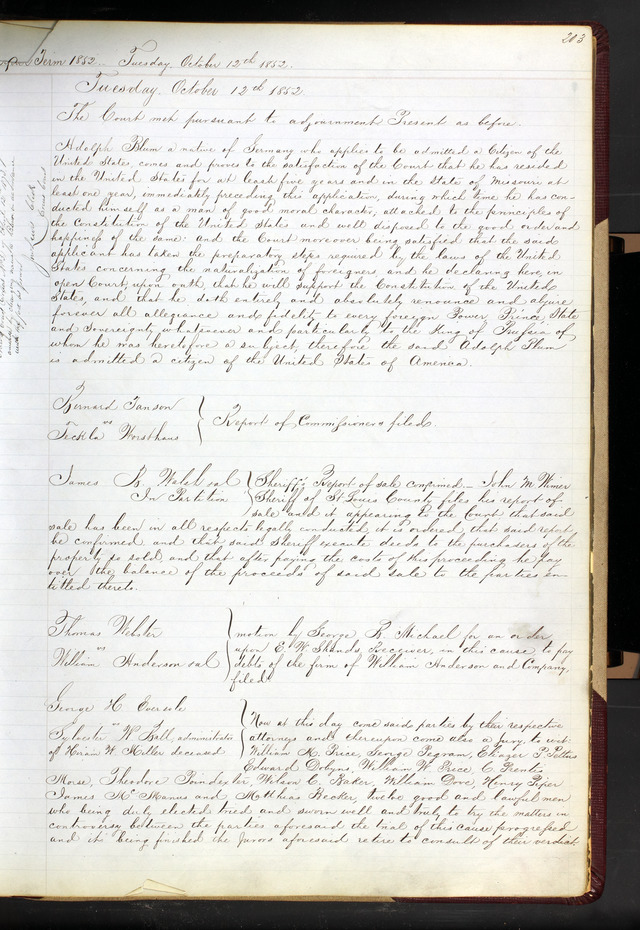 203
Term 1852. Tuesday October 12th 1852.
Tuesday. October 12th 1852
The Court met pursuant to adjournment Present as before.
Adolph Blum a native of Germany who applies to be admitted a Citizen of the
United States, comes and proves to the satisfaction of the Court that he has resided
in the United States for at least five years and in the State of Missouri at
least one year, immediately preceding this application, during which time he has con-
ducted himself as a man of good moral character, attached to the principles of
the Constitution of the United States and well disposed to the good order and
happiness of the same: and the Court moreover being satisfied that the said
applicant has taken the preparatory steps required by the laws of the United
States concerning the naturalization of foreigners and he declaring here, in
open Court, upon oath, that he will support the Constitution of the United
States, and that he doth entirely and absolutely renounce and abjure
forever all allegiance and fidelity to every foreign Power, Prince, State
and Sovereignty whatsoever and particularly to the King of Prussia of
whom he was heretofore a subject, therefore the said Adolph Blum
is admitted a citizen of the United States of America.
Bernard Janson
vs
Teckla Worsthaus
Report of Commissioners filed.
James B. Walsh et al
In Partition
Sheriff's Report of sale confirmed. John M Wimer
Sheriff of St Louis County files his report of
sale and it appearing to the Court that said
sale has been in all respects legally conducted, it is ordered that said report
be confirmed and that said Sheriff execute deeds to the purchasers of the
property so sold, and that after paying the costs of this proceeding he pay
over the balance of the proceeds of said sale to the parties en-
titled thereto.
Thomas Webster
vs
William Anderson et al
motion by George R. Michael for an order
upon E. W. Shands Receiver, in this cause to pay
debts of the firm of William Anderson and Company,
filed.
George H. Eversole
vs
Sylvester W. Ball, administrator
of Hiram W. Miller deceased
Now at this day come said parties by their respective
attorneys and thereupon come also a jury, to wit:
William M. Price, George Pegram, Eliazer P. Pettus
Edward Dobyns, William W. Price C. Prentis
Morse, Theodore Poindexter Wilson C. Baker, William Dove, Henry Piper
James McManus and Matthias Hecker, twelve good and lawful men
who being duly elected tried and sworn well and truly to try the matters in
controversy between the parties aforesaid the trial of this cause progressed
and it being finished the Jurors aforesaid retire to consult of their verdict